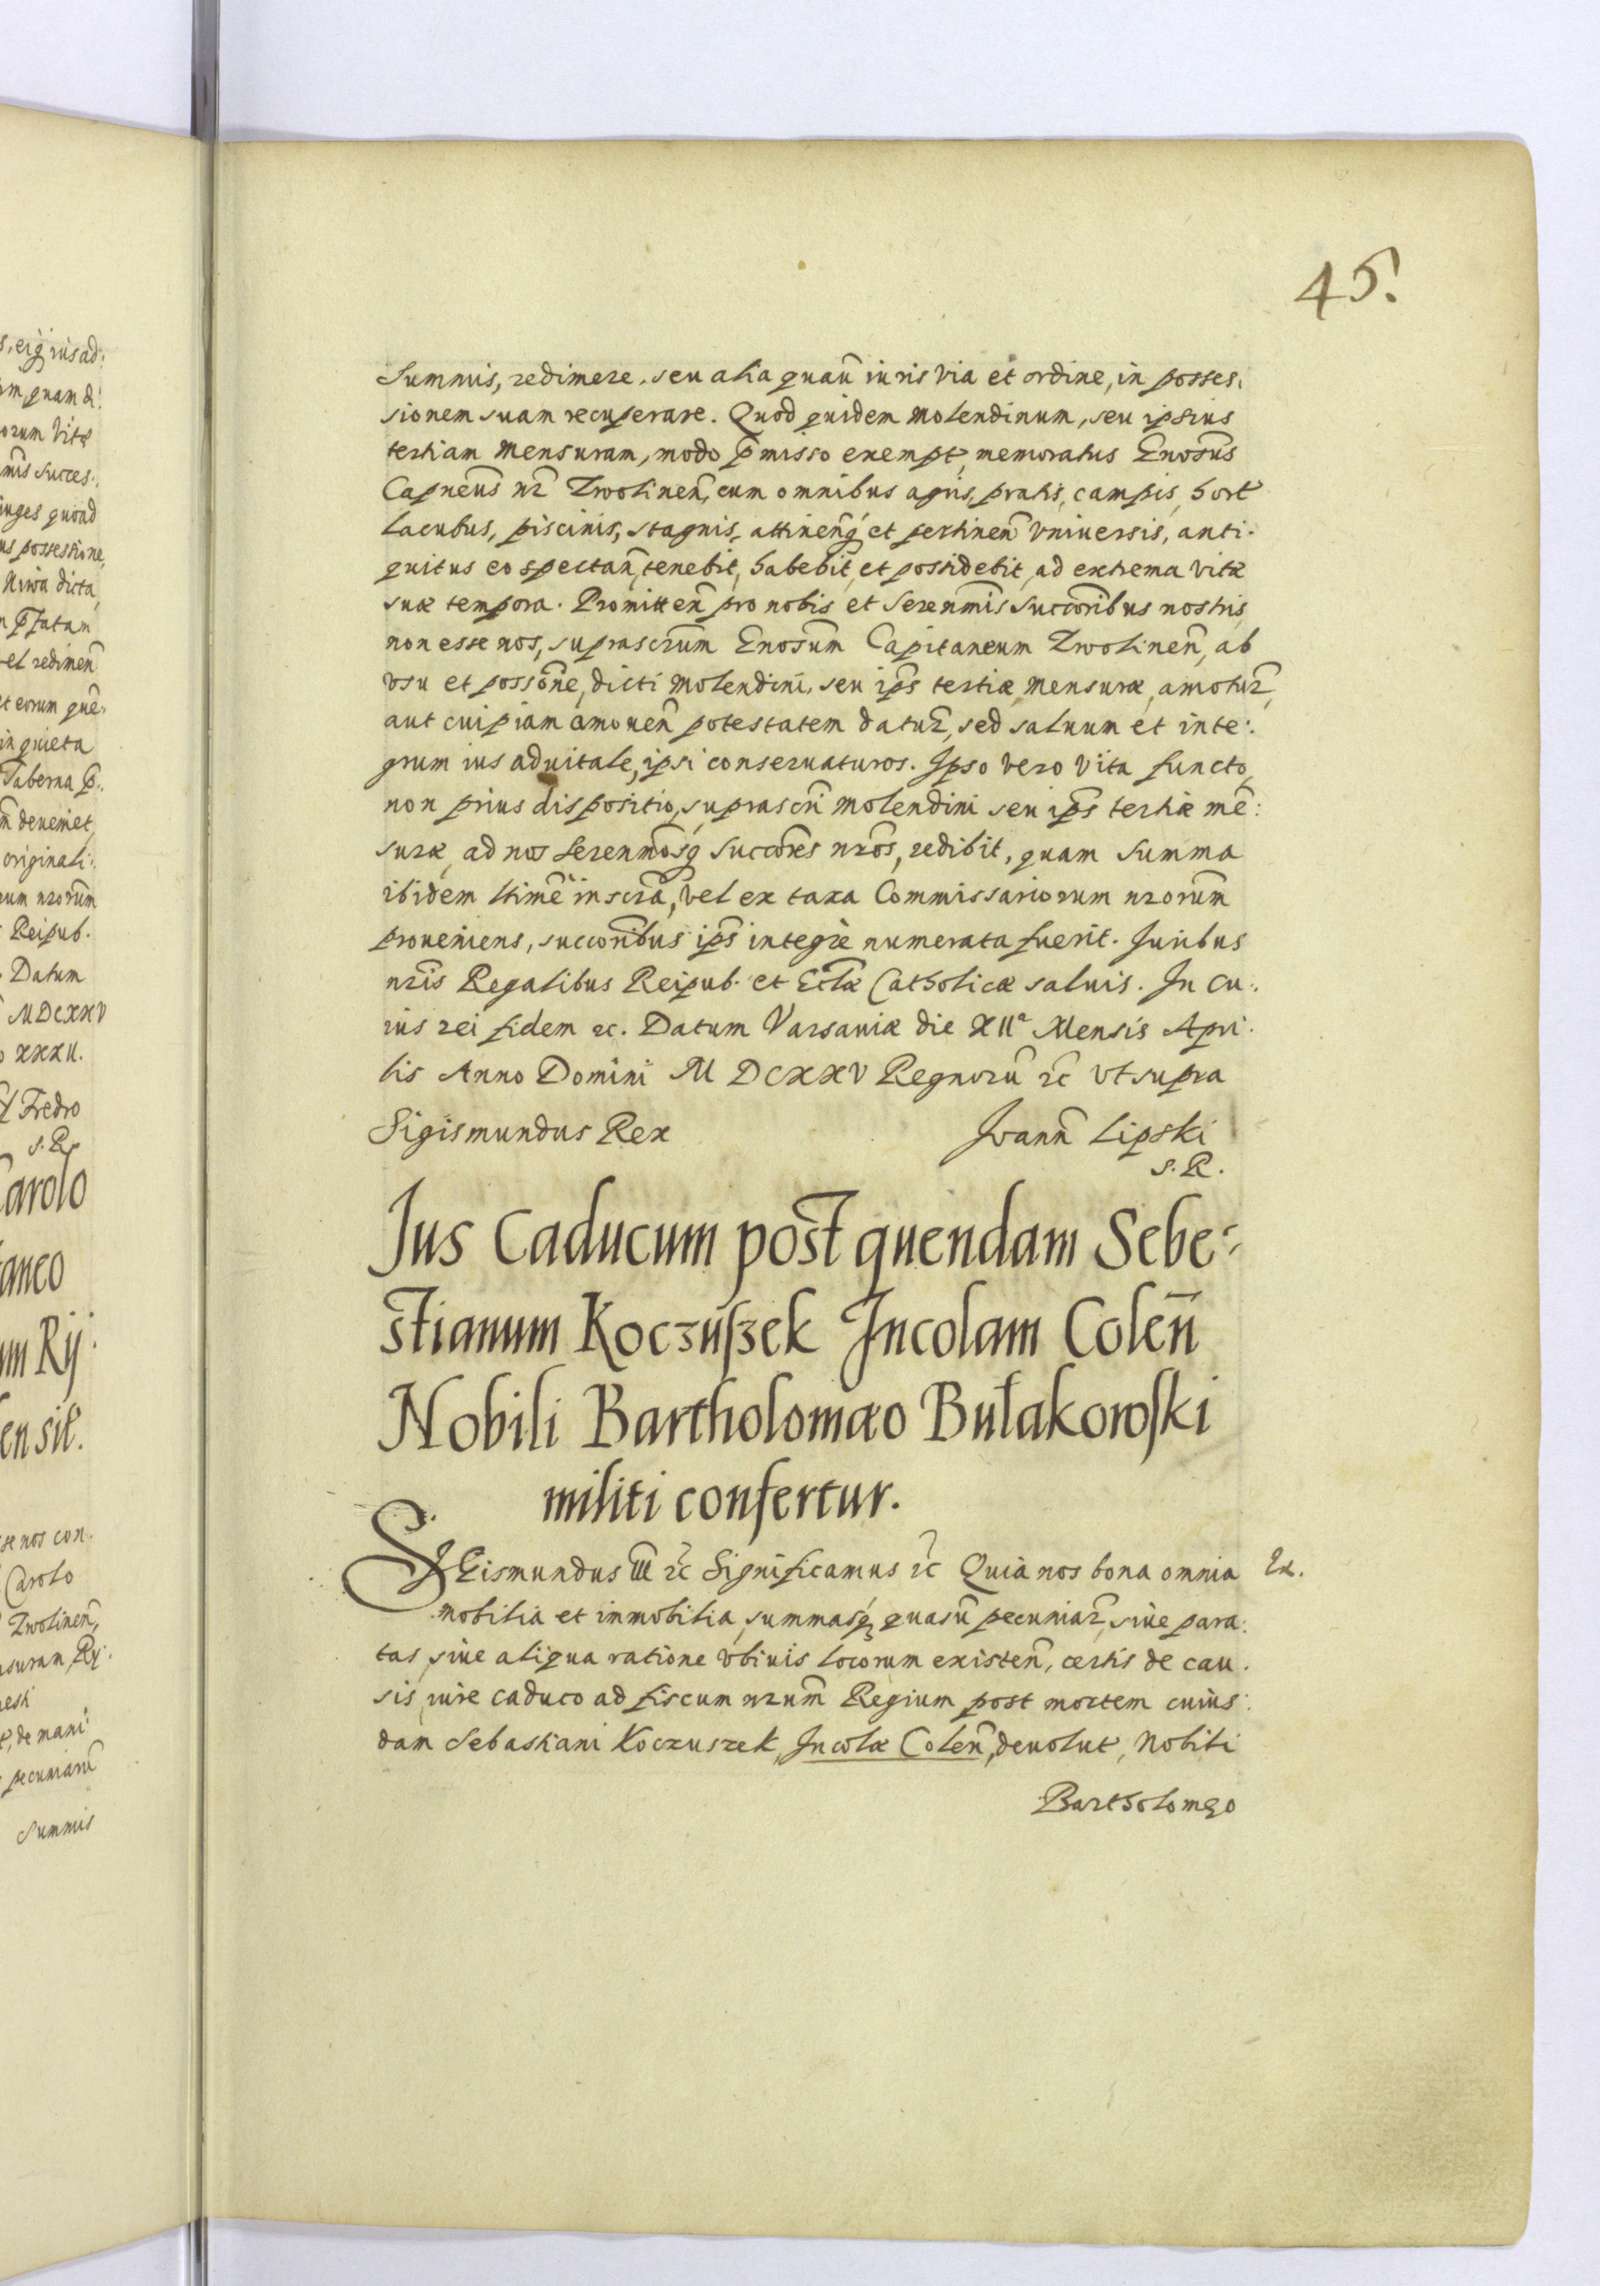 45.
Summis, redimere, seu alia quaũ iuris via et ordine, in posses,
sionem suam recuperare. Quod quidem Molendinum, seu ipsius
tertiam Mensuram, modo p̃misso exempt, memoratus Gñosus
Capneus nr̃ Zwolineñ, cum omnibus agris, pratis, campis, hort
lacubus, piscinis, stagnis, attineñq et pertineñ Vniuersis, anti.
quitus eo spectañ, tenebit, habebit, et possidebit, ad extrema vitæ
suæ tempora. Promitteñ pro nobis et Serenm̃is Succor̃ibus nostris
non esse nos, suprascr̃um Gñosum Capitaneum Zwolineñ, ab
vsu et possõne, dicti Molendini, seu ip̃s tertiæ Mensuræ, amotur̃,
aut cuipiam amoueñ potestatem datur̃, sed saluum et inte:
grum ius aduitale, ipsi conseruaturos. Ipso vero vita functo,
non prius dispositio, suprascr̃i Molendini seu ip̃s tertiæ mẽ:
suræ, ad nos Serenm̃osq Succor̃es nr̃os, redibit, quam summa
ibidem ltimẽ inscr̃a, vel ex taxa Commissariorum nr̃orum
proueniens, succor̃ibus ip̃s integre numerata fuerit. Iuribus
nr̃is Regalibus Reipub. et Ecclæ Catholicæ saluis. In cu:
ius rei fidem &c. Datum Varsauiæ die XIIa Mensis Apri.
lis Anno Domini M DCXXV Regnorũ &c vt supra
Sigismundus Rex Ioañ Lipski
S. R.
Ius Caducum post quendam Sebe:
stianum Koczuszek Incolam Coleñ
Nobili Bartholomæo Bułakowski
militi confertur.
SIGismundus III &c Significamus &c Quia nos bona omnia
Ex.
mobilia et inmobilia, summasq quasũ pecuniar̃, siue para:
tas, siue aliqua ratione vbiuis locorum existeñ, certis de cau.
sis, iure caduco ad fiscum nr̃um Regium post mortem cuius:
dam Sebastiani Koczuszek, Incolæ Coleñ, deuolut, Nobili
Bartholomęo